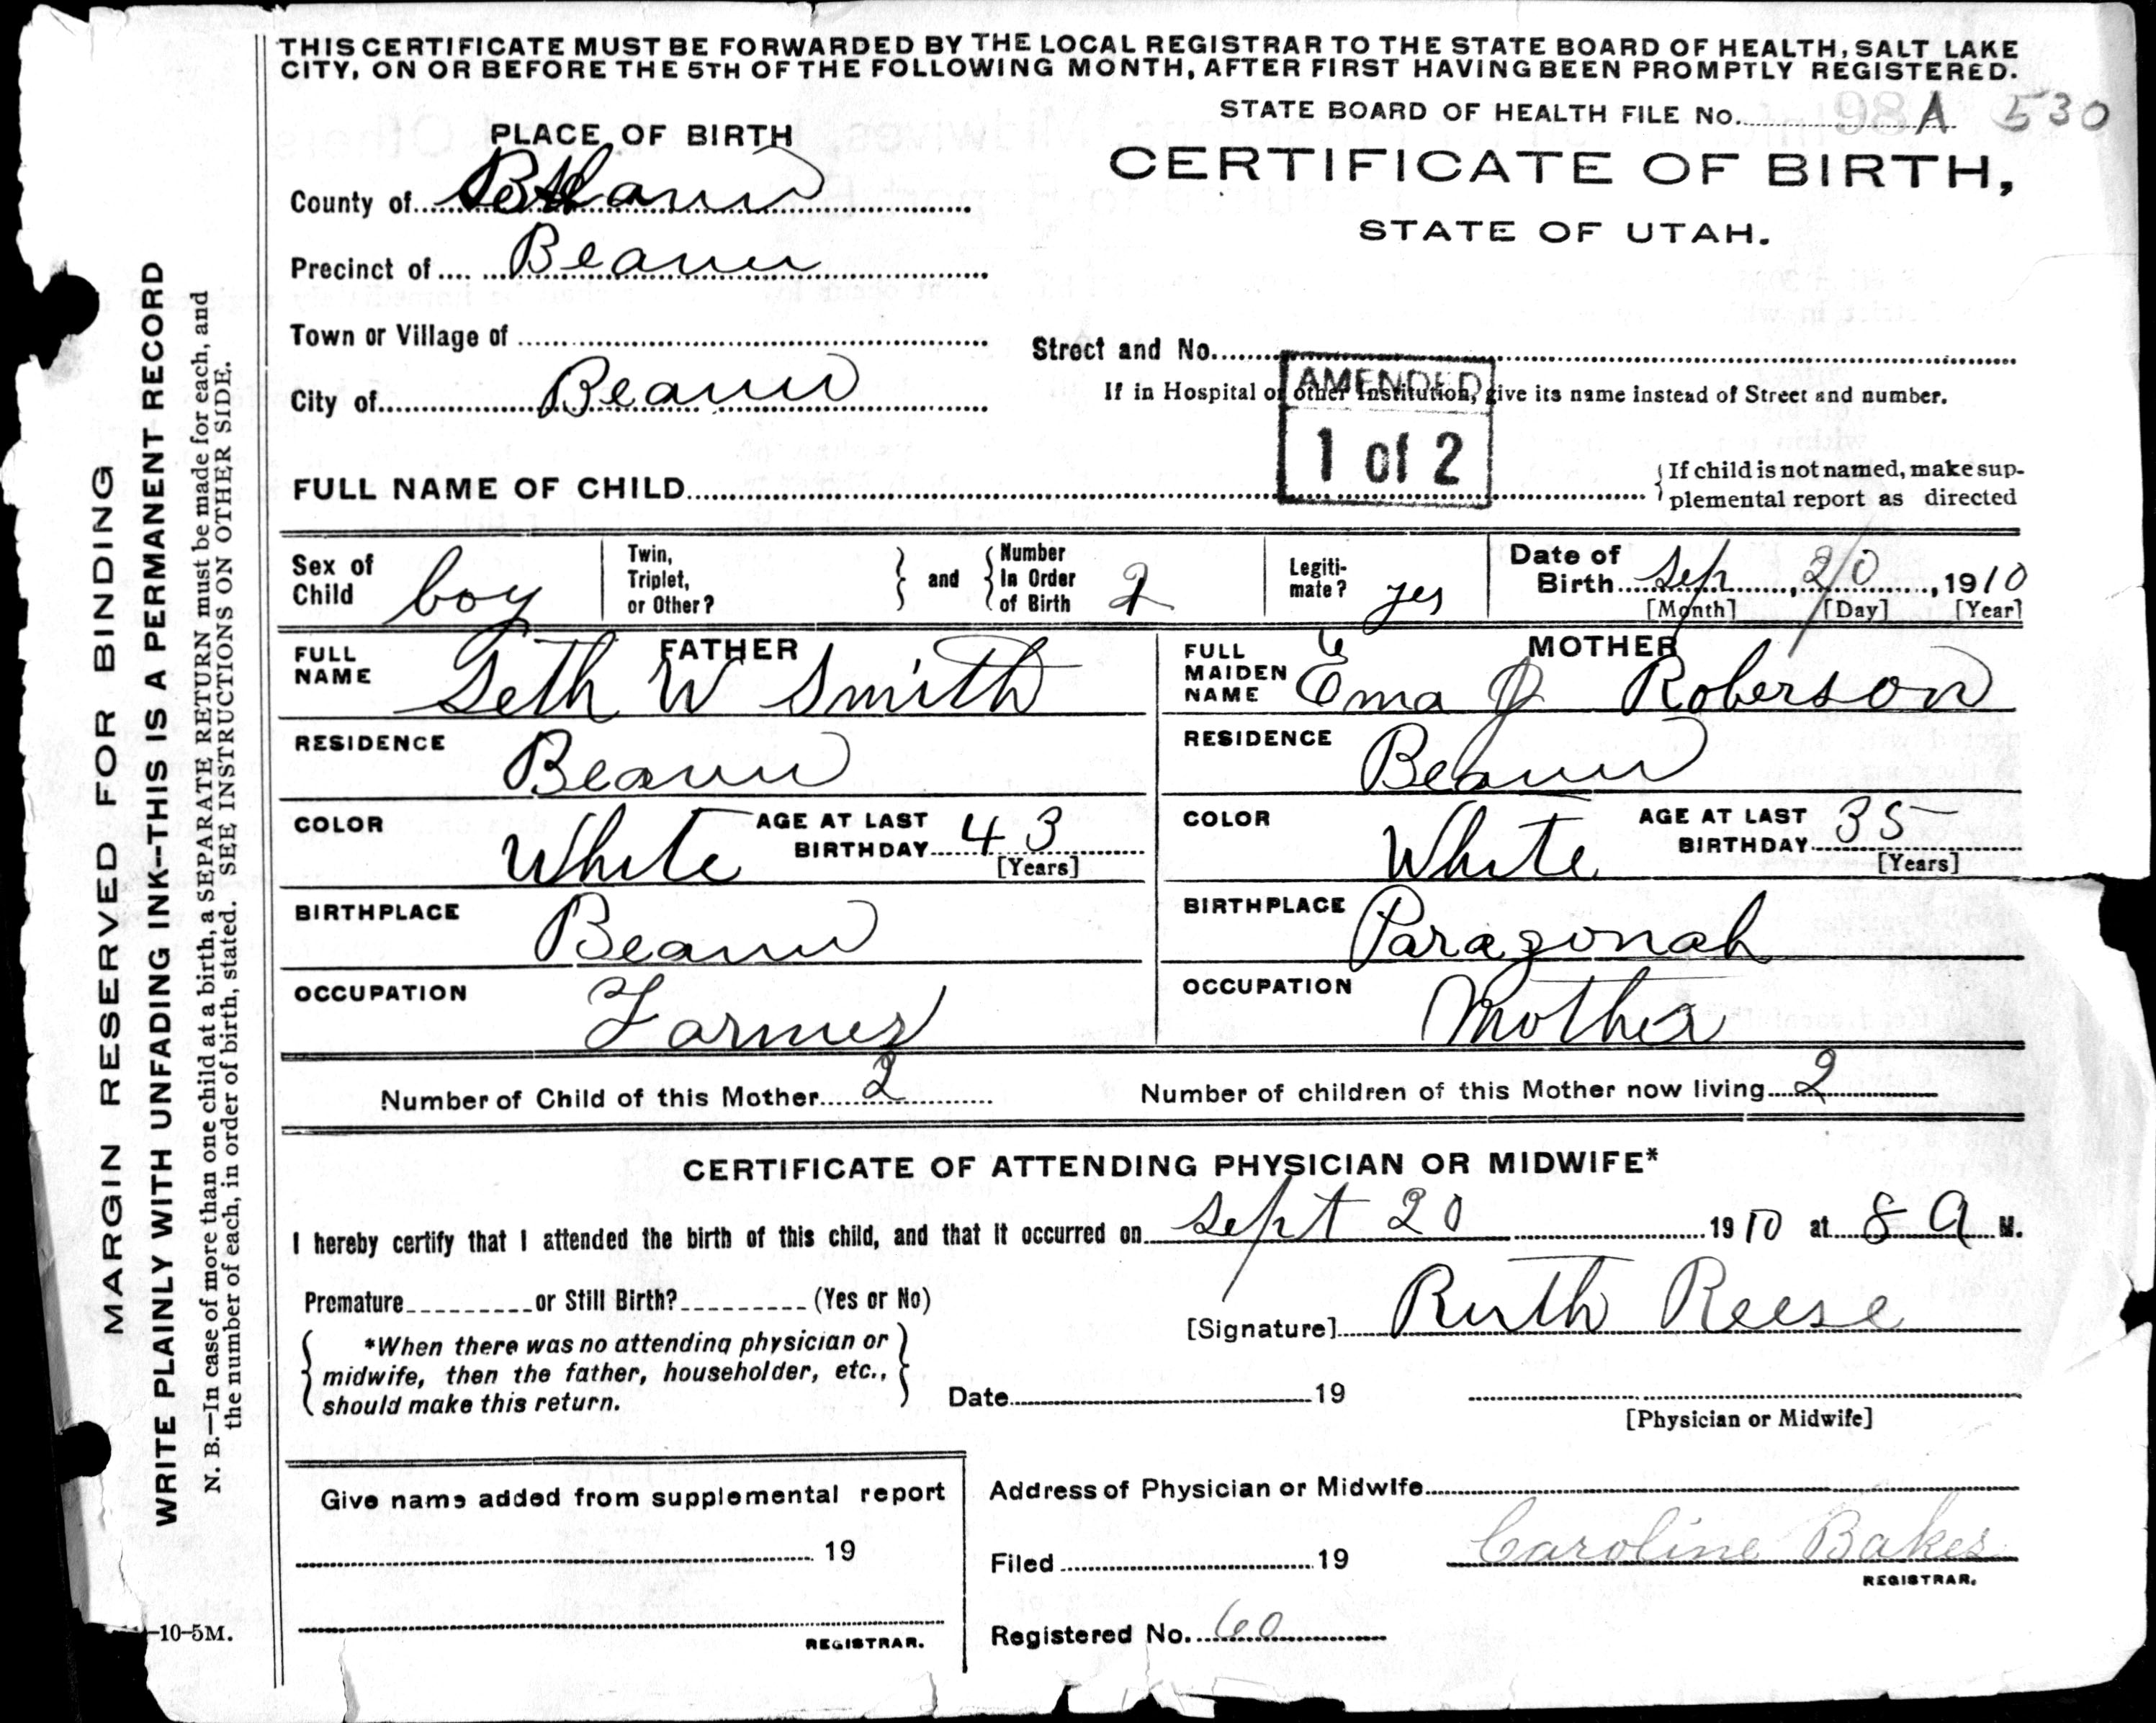 THIS CERTIFICATE MUST BE FORWARDED BY THE LOCAL REGISTRAR TO THE STATE BOARD OF HEALTH, SALT LAKE
CITY, ON OR BEFORE THE 5TH OF THE FOLLOWING MONTH, AFTER FIRST HAVING BEEN PROMPTLY REGISTERED.
STATE BOARD OF HEALTH FILE No. A 530
PLACE OF BIRTH
CERTIFICATE OF BIRTH,
STATE OF UTAH.
County of
Precinct of Beaver
Town or Village of
Street and No.
If in Hospital or other Institution, give its name instead of Street and number.
City of Beaver
AMENDED
1 of 2
FULL NAME OF CHILD
If child is not named, make sup-
plemental report as directed
Sex of Child boy
Twin, Triplet, or Other?
and
Number In Order of Birth
Legiti-mate? yes
Date of Birth Sep 20, 1910
[Month] [Day] [Year]
FATHER
FULL NAME Seth W Smith
MOTHER
FULL MAIDEN NAME Ema J Roberson
RESIDENCE Beaver
RESIDENCE Beaver
COLOR White AGE AT LAST BIRTHDAY 43 [Years]
COLOR White AGE AT LAST BIRTHDAY 35 [Years]
BIRTHPLACE Beaver
BIRTHPLACE Paragonah
OCCUPATION Farmer
OCCUPATION Mother
Number of Child of this Mother 2
Number of children of this Mother now living 2
CERTIFICATE OF ATTENDING PHYSICIAN OR MIDWIFE*
I hereby certify that I attended the birth of this child, and that it occurred on Sept 20 1910 at 8 A M.
Premature or Still Birth? (Yes or No)
[Signature] Ruth Reese
*When there was no attending physician or
midwife, then the father, householder, etc.,
should make this return.
Date 19
[Physician or Midwife]
Give name added from supplemental report
19
REGISTRAR.
Address of Physician or Midwife
Filed 19 Caroline Baker
REGISTRAR.
Registered No. 60
-10-5M.
MARGIN RESERVED FOR BINDING
WRITE PLAINLY WITH UNFADING INK--THIS IS A PERMANENT RECORD
N. B.—In case of more than one child at a birth, a SEPARATE RETURN must be made for each, and
the number of each, in order of birth, stated. SEE INSTRUCTIONS ON OTHER SIDE.